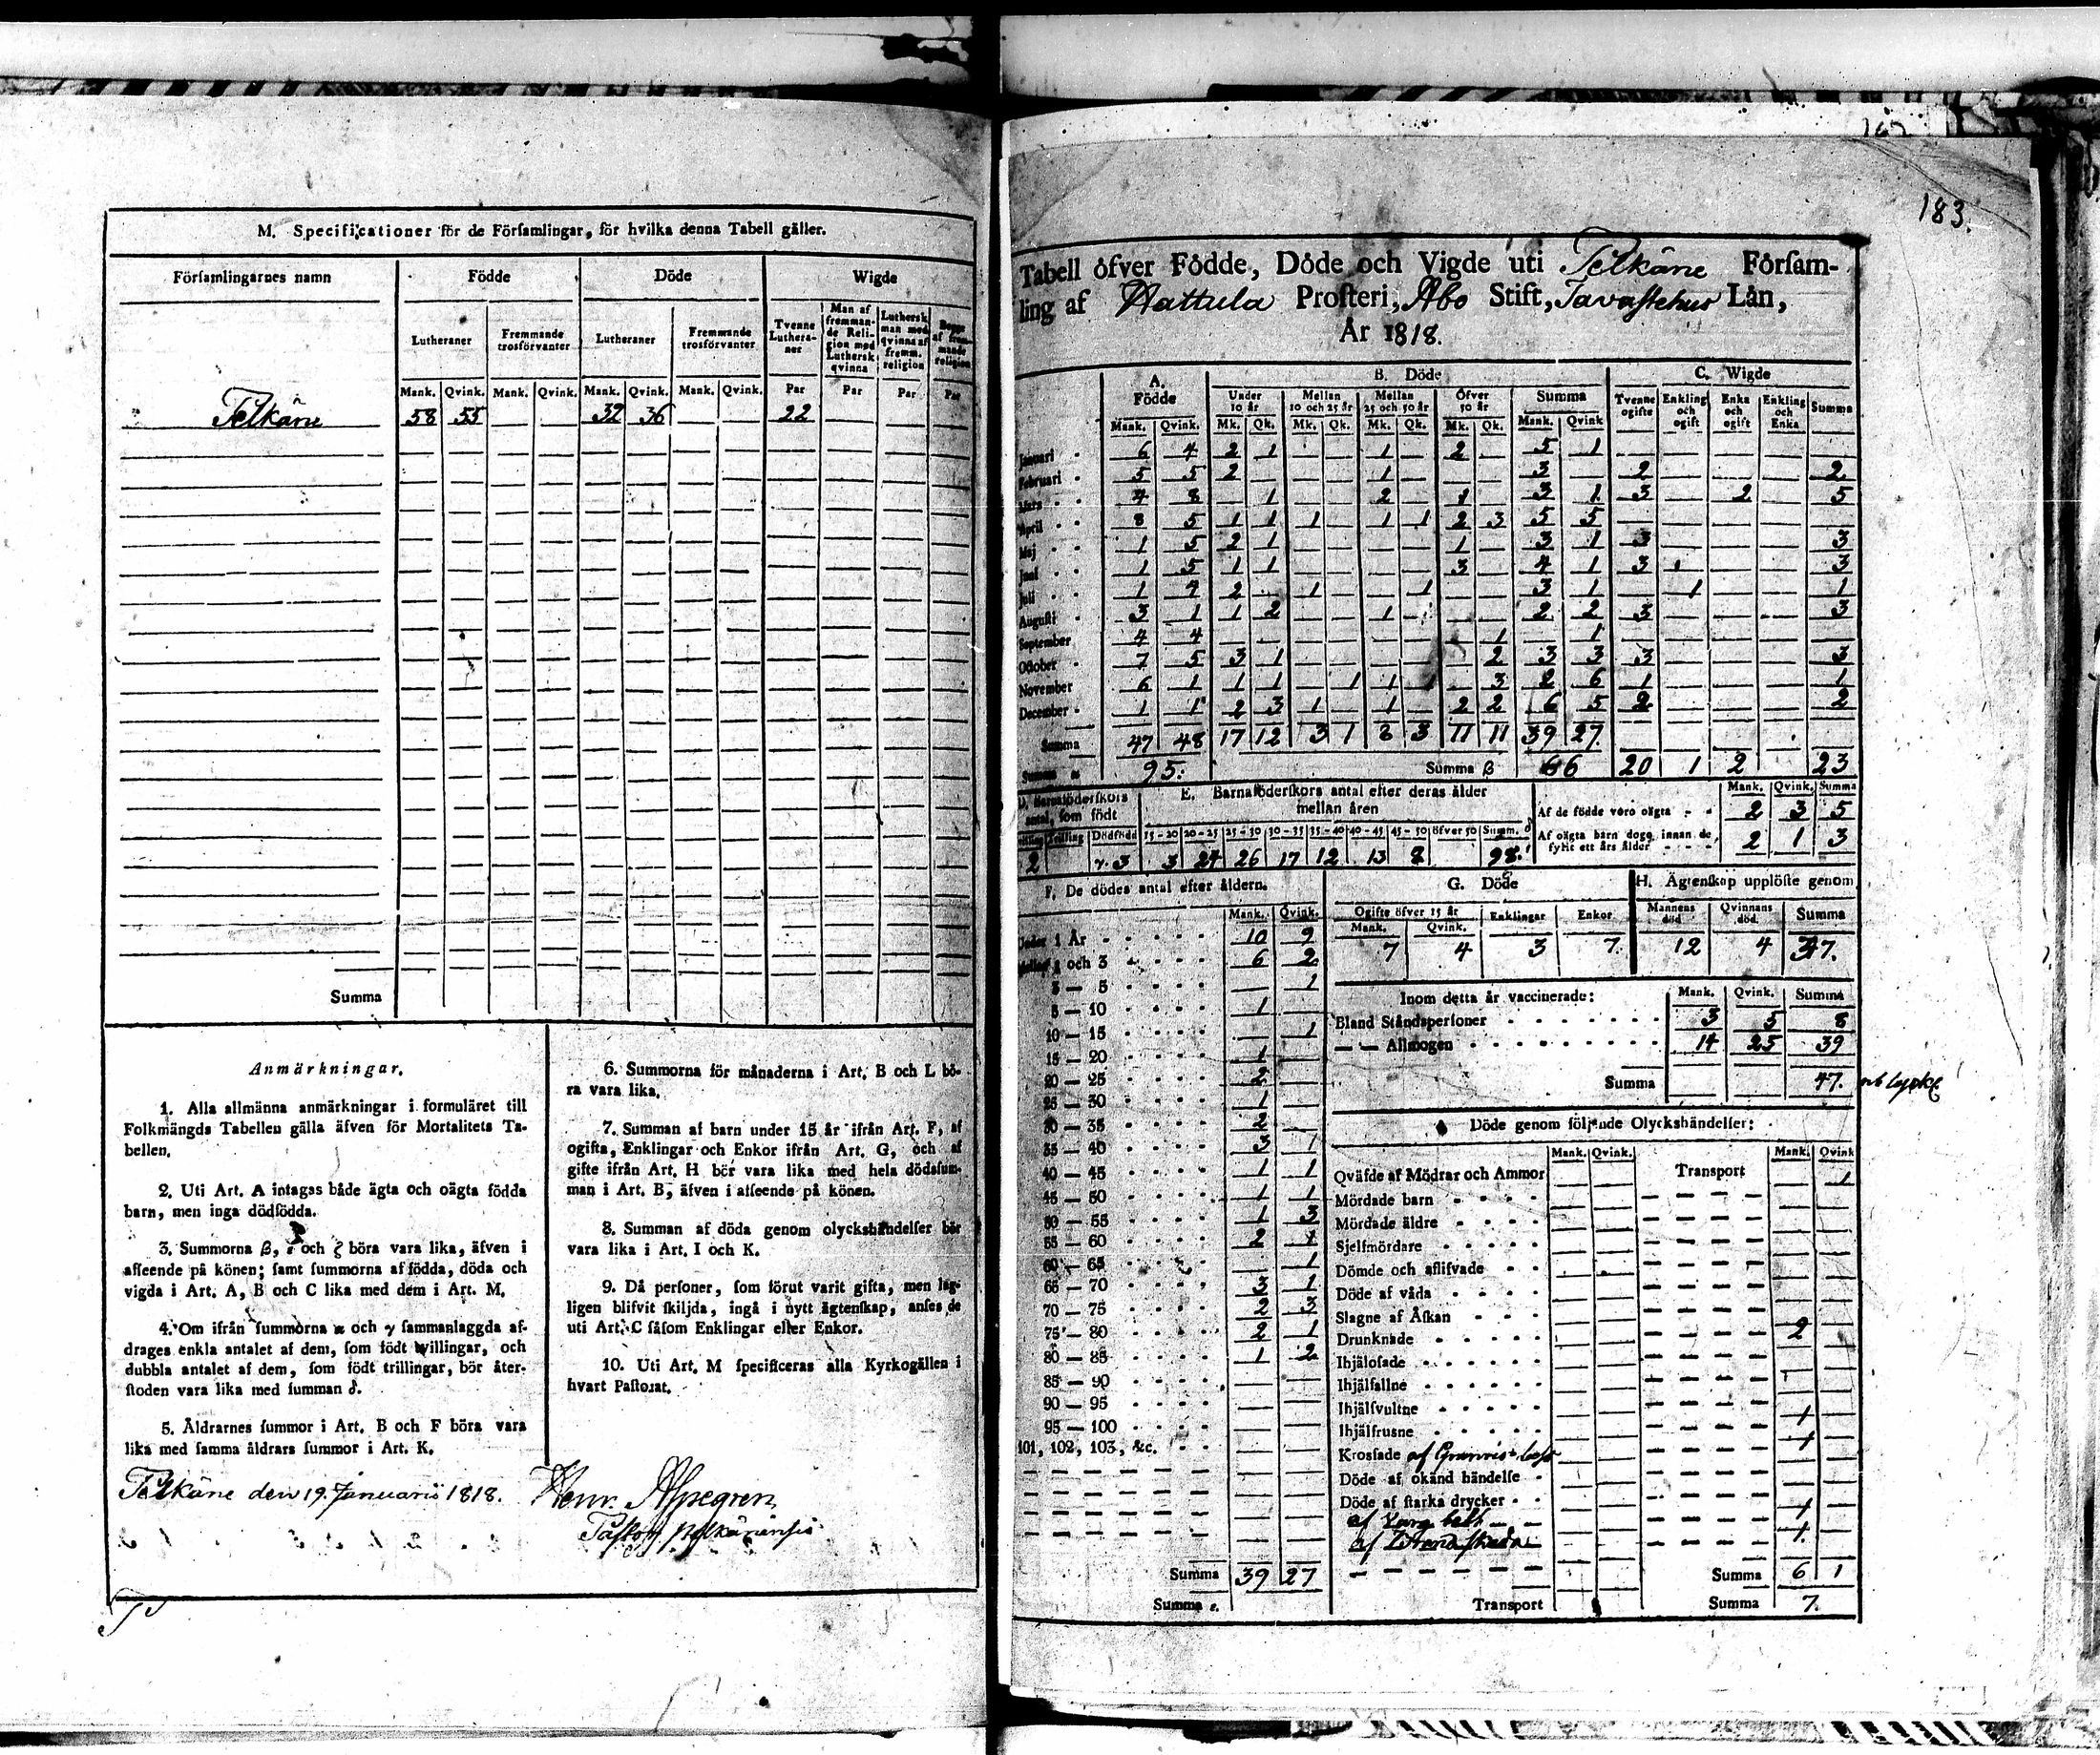 M. Specificationer för de Församlingar, för hvilka denna Tabell gäller.
Församlingarnes namn Födde Döde Wigde
Lutheraner Fremmande trosförvanter Lutheraner Fremmande trosförvanter Tvenne Lutheraner Man af fremmande Religion med Luthersk qvinna Luthersk man med qvinna af fremm. religion Begge af fremmande religion
Mank. Qvink. Mank. Qvink. Mank. Qvink. Mank. Qvink. Par Par Par Par
Pelkäne 58 55 — — 32 36 — — 22 — — —
Summa
Anmärkningar.
1. Alla allmänna anmärkningar i formuläret till
Folkmängds Tabellen gälla äfven för Mortalitets Ta-
bellen.
2. Uti Art. A intagas både ägta och oägta födda
barn, men inga dödfödda.
3. Summorna β, ε och ζ böra vara lika, äfven i
afseende på könen; samt summorna af födda, döda och
vigda i Art. A, B och C lika med dem i Art. M.
4. Om ifrån summorna α och γ sammanlaggda af-
drages enkla antalet af dem, som födt tvillingar, och
dubbla antalet af dem, som födt trillingar, bör åter-
stoden vara lika med summan δ.
5. Åldrarnes summor i Art. B och F böra vara
lika med samma åldrars summor i Art. K.
6. Summorna för månaderna i Art. B och L bö-
ra vara lika.
7. Summan af barn under 15 år ifrån Art. F, af
ogifta, Enklingar och Enkor ifrån Art. G, och af
gifte ifrån Art. H bör vara lika med hela dödssum-
man i Art. B, äfven i afseende på könen.
8. Summan af döda genom olyckshändelser bör
vara lika i Art. I och K.
9. Då personer, som förut varit gifta, men lag-
ligen blifvit skiljda, ingå i nytt ägtenskap, anses de
uti Art. C såsom Enklingar eller Enkor.
10. Uti Art. M specificeras alla Kyrkogällen i
hvart Pastorat.
Pelkäne den 19. Januarii 1818. Henr. Ahlegren
Pastor Pelkänensis
183.
Tabell öfver Födde, Döde och Vigde uti Pelkäne Försam-
ling af Hattula Prosteri, Åbo Stift, Tavastehus Län,
År 1818.
A. Födde B. Döde C. Wigde
Under 10 år Mellan 10 och 25 år Mellan 25 och 50 år Öfver 50 år Summa Tvenne ogifte Enkling och ogift Enka och ogift Enkling och Enka Summa
Mank. Qvink. Mk. Qk. Mk. Qk. Mk. Qk. Mk. Qk. Mank. Qvink
Januari 6 4 2 1 — — 1 — 2 — 5 1 — — — — —
Februari 5 5 2 — — — 1 — — — 3 — 2 — — — 2
Mars 4 8 — 1 — — 2 — 1 — 3 1 3 — 2 — 5
April 8 5 1 1 1 — 1 1 2 3 5 5 — — — — —
Maj 1 5 2 1 — — — — 1 — 3 1 3 — — — 3
Juni 1 5 1 1 — — — — 3 — 4 1 3 — — — 3
Juli 1 4 2 — 1 — — 1 — — 3 1 — 1 — — 1
Augusti 3 1 1 2 — — 1 — — — 2 2 3 — — — 3
September 4 4 — — — — — — — 1 — 1 — — — — —
October 7 5 3 1 — — — — — 2 3 3 3 — — — 3
November 6 1 1 1 — 1 1 1 — 3 2 6 1 — — — 1
December 1 1 2 3 1 — 1 — 2 2 6 5 2 — — — 2
Summa 47 48 17 12 3 1 8 3 11 11 39 27
Summa α 95. Summa β 66 20 1 2 23
D. Barnaföderskors antal, som födt
E. Barnaföderskors antal efter deras ålder mellan åren
Mank. Qvink. Summa
Tvilling Trilling Dödfödd 15 - 20 20 - 25 25 - 30 30 - 35 35 - 40 40 - 45 45 - 50 öfver 50 Summ. δ
2 γ. 3 3 24 26 17 12 13 8 98.
Af de födde voro oägta 2 3 5
Af oägta barn dogo innan de fyllt ett års ålder 2 1 3
F. De dödes antal efter åldern.
Mank. Qvink.
Under 1 År 10 9
Mellan 1 och 3 6 2
3 — 5 — 1
5 — 10 1 —
10 — 15 — 1
15 — 20 1 —
20 — 25 2 —
25 — 30 1 —
30 — 35 2 —
35 — 40 3 1
40 — 45 1 1
45 — 50 1 1
50 — 55 1 3
55 — 60 2 1
60 — 65 — 1
65 — 70 3 1
70 — 75 2 3
75 — 80 2 1
80 — 85 1 2
85 — 90
90 — 95
95 — 100
101, 102, 103, &c.
Summa 39 27
Summa ε.
G. Döde
Ogifte öfver 15 år Enklingar Enkor
Mank. Qvink.
7 4 3 7.
H. Ägtenskap upplöste genom
Mannens död Qvinnans död. Summa
12 4
Inom detta år vaccinerade: Mank. Qvink. Summa
Bland Ståndspersoner 3 5 8
— — Allmogen 14 25 39
Summa 47.
Döde genom följande Olyckshändelser:
Mank. Qvink. Mank. Qvink
Qväfde af Mödrar och Ammor Transport — 1
Mördade barn
Mördade äldre
Sjelfmördare
Dömde och aflifvade
Döde af våda
Slagne af Åskan
Drunknade 2
Ihjälosade
Ihjälfallne
Ihjälsvultne
Ihjälfrusne 1
Krossade af 1
Döde af okänd händelse
Döde af starka drycker
af 1
af 1
Summa 6 1
Transport Summa 7.